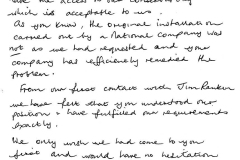 access to our
which is acceptable to us.
As you know, the original installation
carried out by a national company was
not as we had requested and your
company has efficiently remedied the
problem.
From our first contact with Jim Rankin
we have felt that you understood our
position & have fulfilled our requirements
exactly.
We only wish we had come to you
first and would have no hesitation